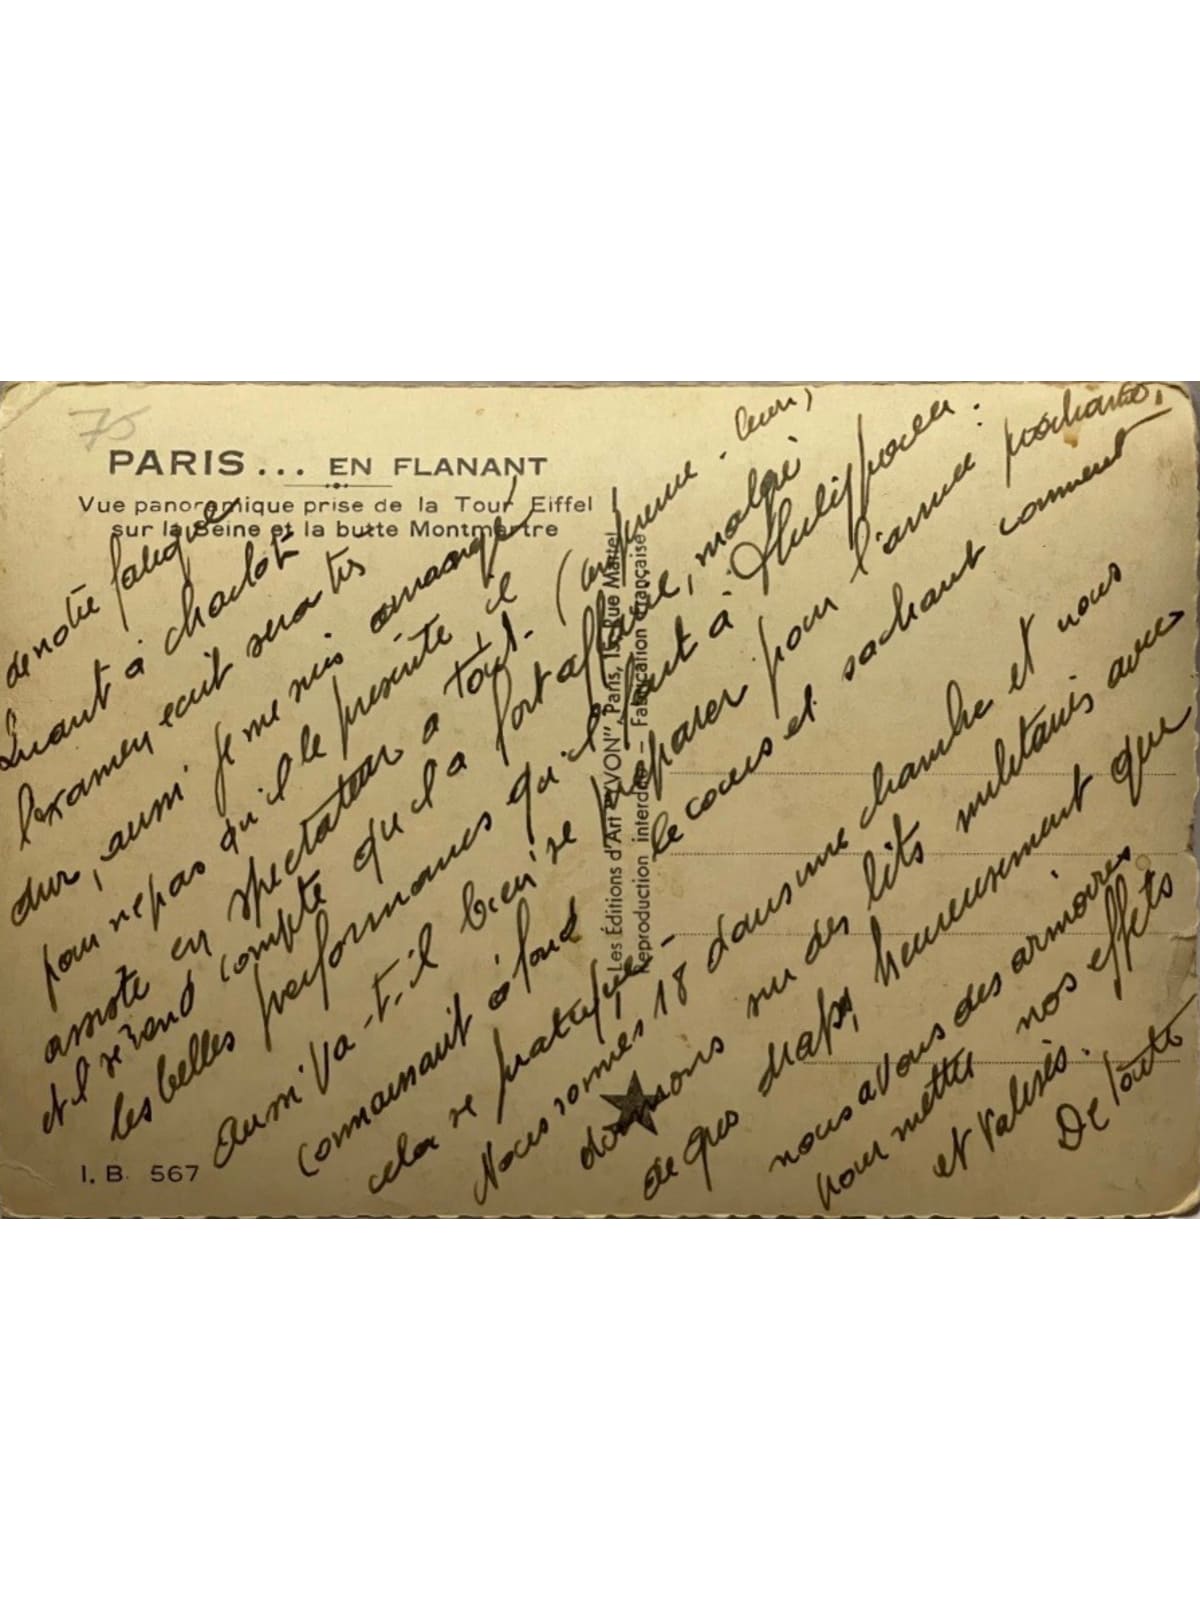 75
PARIS... EN FLANANT
Vue panoramique prise de la Tour Eiffel
sur la Seine et la butte Montmartre
de notre fatigue
Quant à Charlot
l'examen écrit sera très
dur, aussi je me suis arrangé
pour ne pas qu'il le présente il
assiste en spectateur à tout. (
et il se rend compte qu'il a fort affaire, malgré
les belles performances qu'il fait à
Aussi va-t-il bien se préparer pour l'année prochaine,
connaissant à fond le cours et sachant comment
cela se pratique -
Nous sommes 18 dans une chambre et nous
dormons sur des lits militaires avec
de gros draps, heureusement que
nous avons des armoires
pour mettre nos effets
et valises.
De toute
I. B. 567
Les Éditions d'Art "YVON", Paris, 15, Rue Martel
Reproduction interdite - Fabrication Française